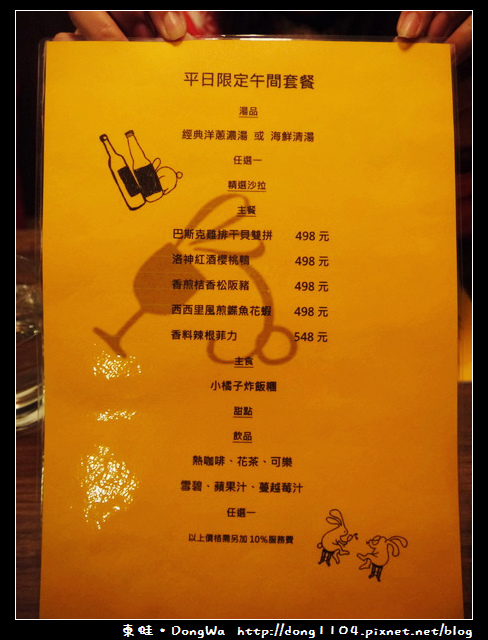 平日限定午間套餐
湯品
經典洋蔥濃湯 或 海鮮清湯
任選一
精選沙拉
主餐
巴斯克雞排干貝雙拼 498 元
洛神紅酒櫻桃鴨 498 元
香煎桔香松阪豬 498 元
西西里風煎鯛魚花蝦 498 元
香料辣根菲力 548 元
主食
小橘子炸飯糰
甜點
飲品
熱咖啡、花茶、可樂
雪碧、蘋果汁、蔓越莓汁
任選一
以上價格需另加 10%服務費
東蛙•DongWa http://dong1104.pixnet.net/blog